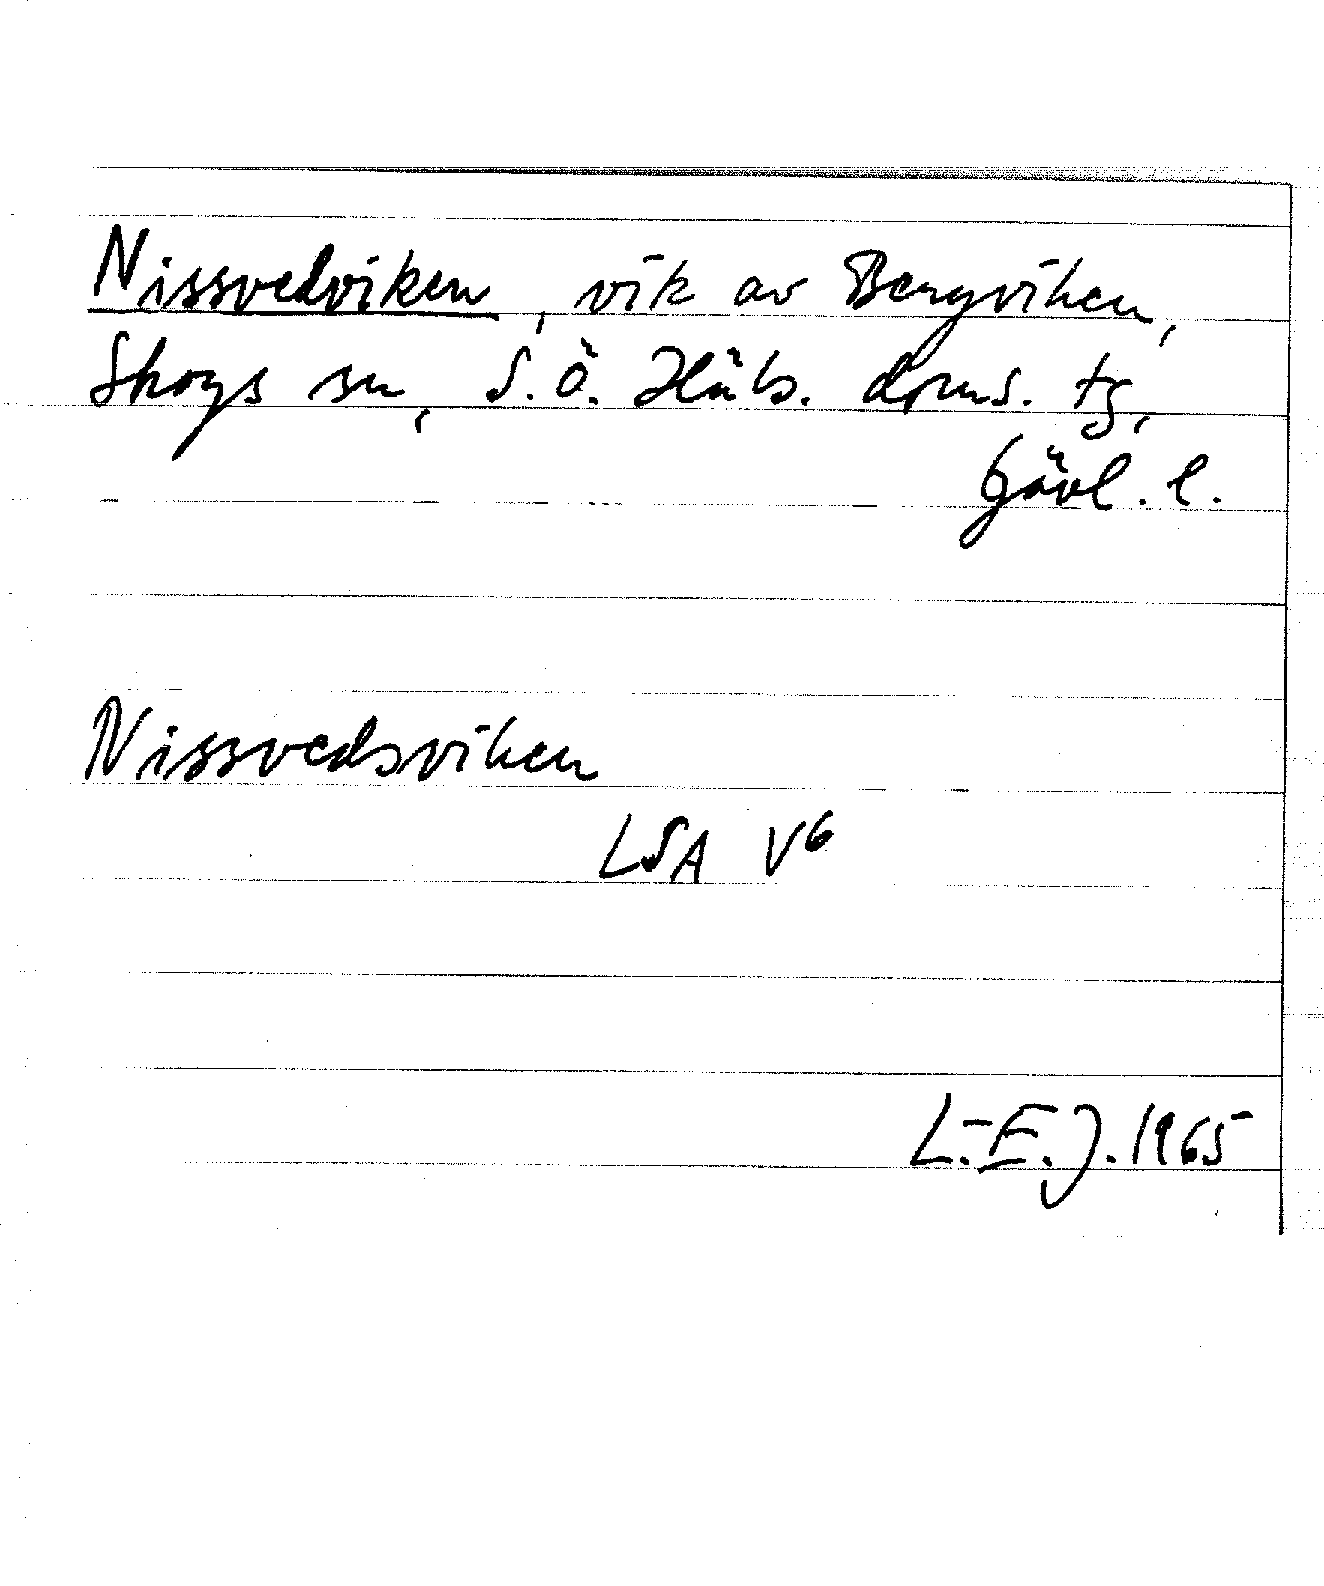 Nissvedviken, vik av Bergviken,
Skogs sn, S.Ö. Häls. doms. tg,
Gävl. l.
Nissvedsviken
LSA V6
L.-E. J. 1965